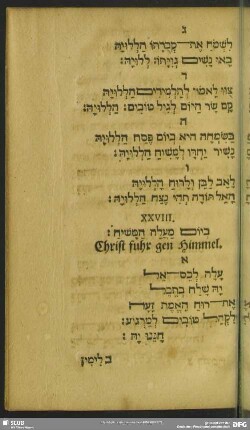 ג
לִמְשֹׁחַ אֶת־קְבֻרָתוֹ הַלְלוּיָהּ
בָּאוּ נָשִׁים גְּוִיָּתוֹ לְלוּיָהּ:
ד
צִוּוּ לֵאמֹר לְתַלְמִידִים הַלְלוּיָהּ
קָם שַׂר הַיּוֹם לְגִיל טוֹבִים: הַלְלוּיָהּ:
ה
בְּשִׂמְחָה הִיא בְּיוֹם פֶּסַח הַלְלוּיָהּ
נָשִׁיר יַחְדָּו לַמָּשִׁיחַ הַלְלוּיָהּ:
ו
לְאָב לְבֵן וּלְרוּחַ הַלְלוּיָהּ
הָאֵל תּוֹדָה תְּהִי נֶצַח הַלְלוּיָהּ:
XXVIII.
בְּיוֹם מַעֲלַת הַמָּשִׁיחַ:
Christ fuhr gen Himmel.
א
עָלָה לְכִסֵּא
יָהּ שָׁלַח
אֶת־רוּחַ הָאֱמֶת
טוֹבִים לְמַרְגִּיעַ:
חָנֵּנוּ יָהּ:
ב לימין
SLUB
DFG